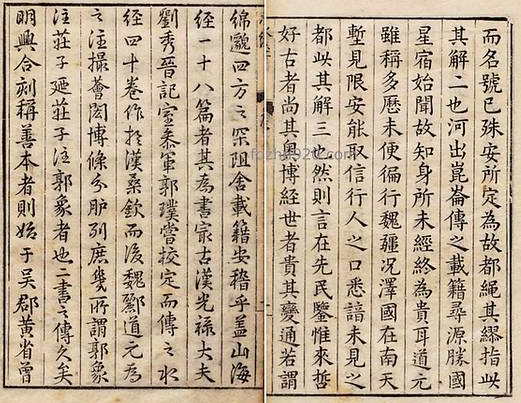 而名號已殊安所定為故都繩其繆指此
其解二也河出崑崙傳之載籍尋源勝國
星宿始聞故知身所未經終為貴耳道元
雖稱多歷未便徧行魏疆况澤國在南天
塹見限安能取信行人之口悉諳未見之
都此其解三也然則言在先民鑒惟來哲
好古者尚其奧博經世者貴其變通若謂
綿邈四方之深阻舍載籍安稽乎蓋山海
经一十八篇者其為書㝡古漢光祿大夫
劉秀晉記室叅軍郭璞嘗挍定而傳之水
经四十卷作於漢桑欽而後魏酈道元為
之注撮薈閎博條分臚列庶幾所謂郭象
注莊子廼莊子注郭象者也二書之傳久矣
明興合刻稱善本者則始于吳郡黃省曾